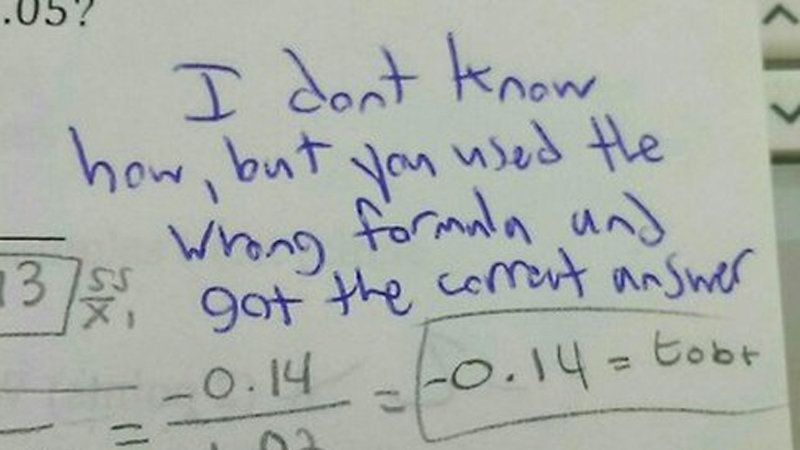 .05?
I dont know
how, but you used the
wrong formula and
got the correct answer
13 SS
X1
= -0.14 = -0.14 = tobt